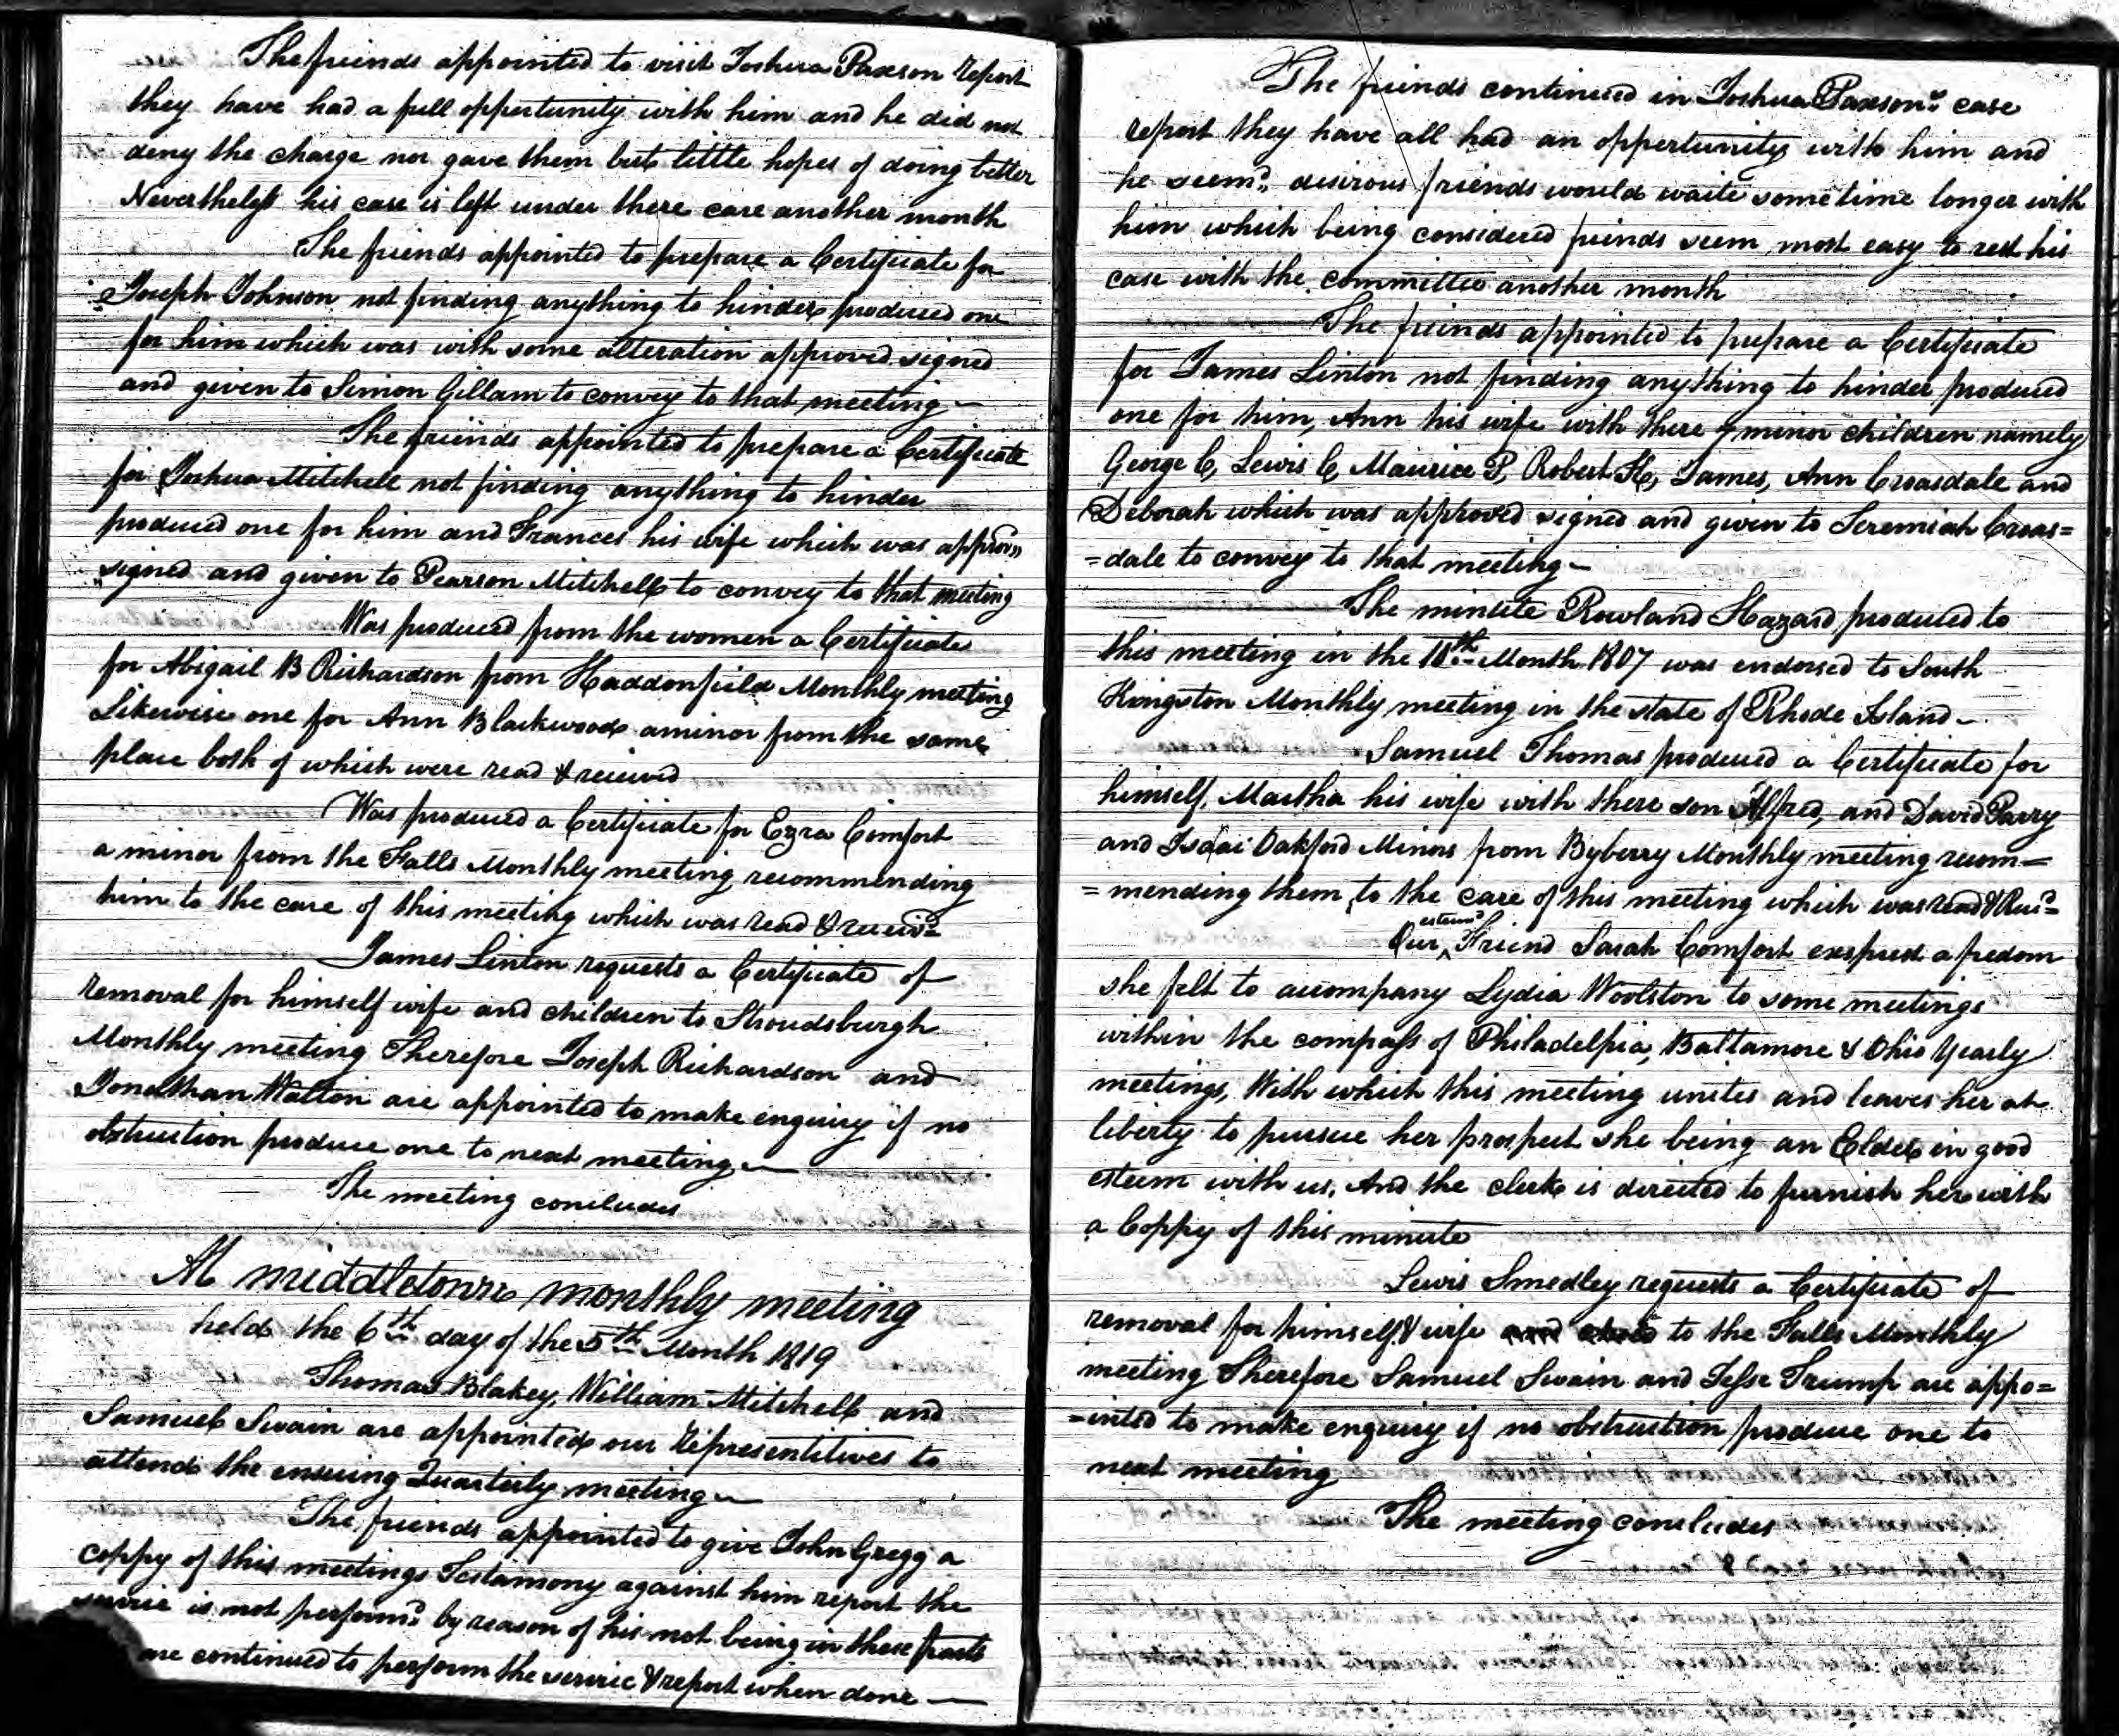 The friends appointed to visit Joshua Paxson report
they have had a full oppertunity with him and he did not
deny the charge nor gave them but little hopes of doing better
Nevertheless his case is left under there care another month
The friends appointed to prepare a Certificate for
Joseph Johnson not finding anything to hinder produced one
for him which was with some alteration approved signed
and given to Simon Gillam to convey to that meeting
The friends appointed to prepare a Certificate
for Joshua Mitchell not finding anything to hinder
produced one for him and Frances his wife which was approv"
signed and given to Pearson Mitchell to convey to that meeting
Was produced from the women a Certificate
for Abigail B Richardson from Haddonfield Monthly meeting
Likewise one for Ann Blackwood a minor from the same
place both of which were read & received
Was produced a Certificate for Ezra Comfort
a minor from the Falls Monthly meeting recommending
him to the care of this meeting which was read & receiv.d
James Linton requests a Certificate of
removal for himself wife and children to Stroudsburgh
Monthly meeting Therefore Joseph Richardson and
Jonathan Walton are appointed to make enquiry if no
obstruction produce one to next meeting
The meeting concludes
At middletown monthly meeting
held the 6th day of the 5th Month 1819
Thomas Blakey, William Mitchell and
Samuel Swain are appointed our representitives to
attend the ensuing Quarterly meeting
The friends appointed to give John Gregg a
coppy of this meetings Testamony against him report the
service is not perform.d by reason of his not being in these parts
are continued to perform the service & report when done
The friends continued in Joshua Paxson.s case
report they have all had an oppertunity with him and
he seem.d desirous friends would waite some time longer with
him which being considered friends seem most easy to rest his
case with the committee another month
The friends appointed to prepare a Certificate
for James Linton not finding anything to hinder produced
one for him, Ann his wife with there 7 minor children namely
George C, Lewis C, Maurice P, Robert H, James, Ann Croasdale and
Deborah which was approved signed and given to Jeremiah Croas=
=dale to convey to that meeting
The minute Rowland Hazard produced to
this meeting in the 11th Month 1807 was endorsed to South
Kingston Monthly meeting in the state of Rhode Island
Samuel Thomas produced a Certificate for
himself, Martha his wife with there son Alfred, and David Parry
and Isdai Oakford Minors from Byberry Monthly meeting recom=
=mending them to the care of this meeting which was read & Rec.d
Our esteem.d Friend Sarah Comfort exsprest a fredom
she felt to accompany Lydia Woolston to some meetings
within the compass of Philadelphia, Baltamore & Ohio Yearly
meetings, With which this meeting unites and leaves her at
liberty to pursue her prospect she being an Elder in good
esteem with us, And the clerk is directed to furnish her with
a Coppy of this minute
Lewis Smedley requests a Certificate of
removal for himself & wife to the Falls Monthly
meeting Therefore Samuel Swain and Jesse Trump are appo=
=inted to make enquiry if no obstruction produce one to
next meeting
The meeting concludes